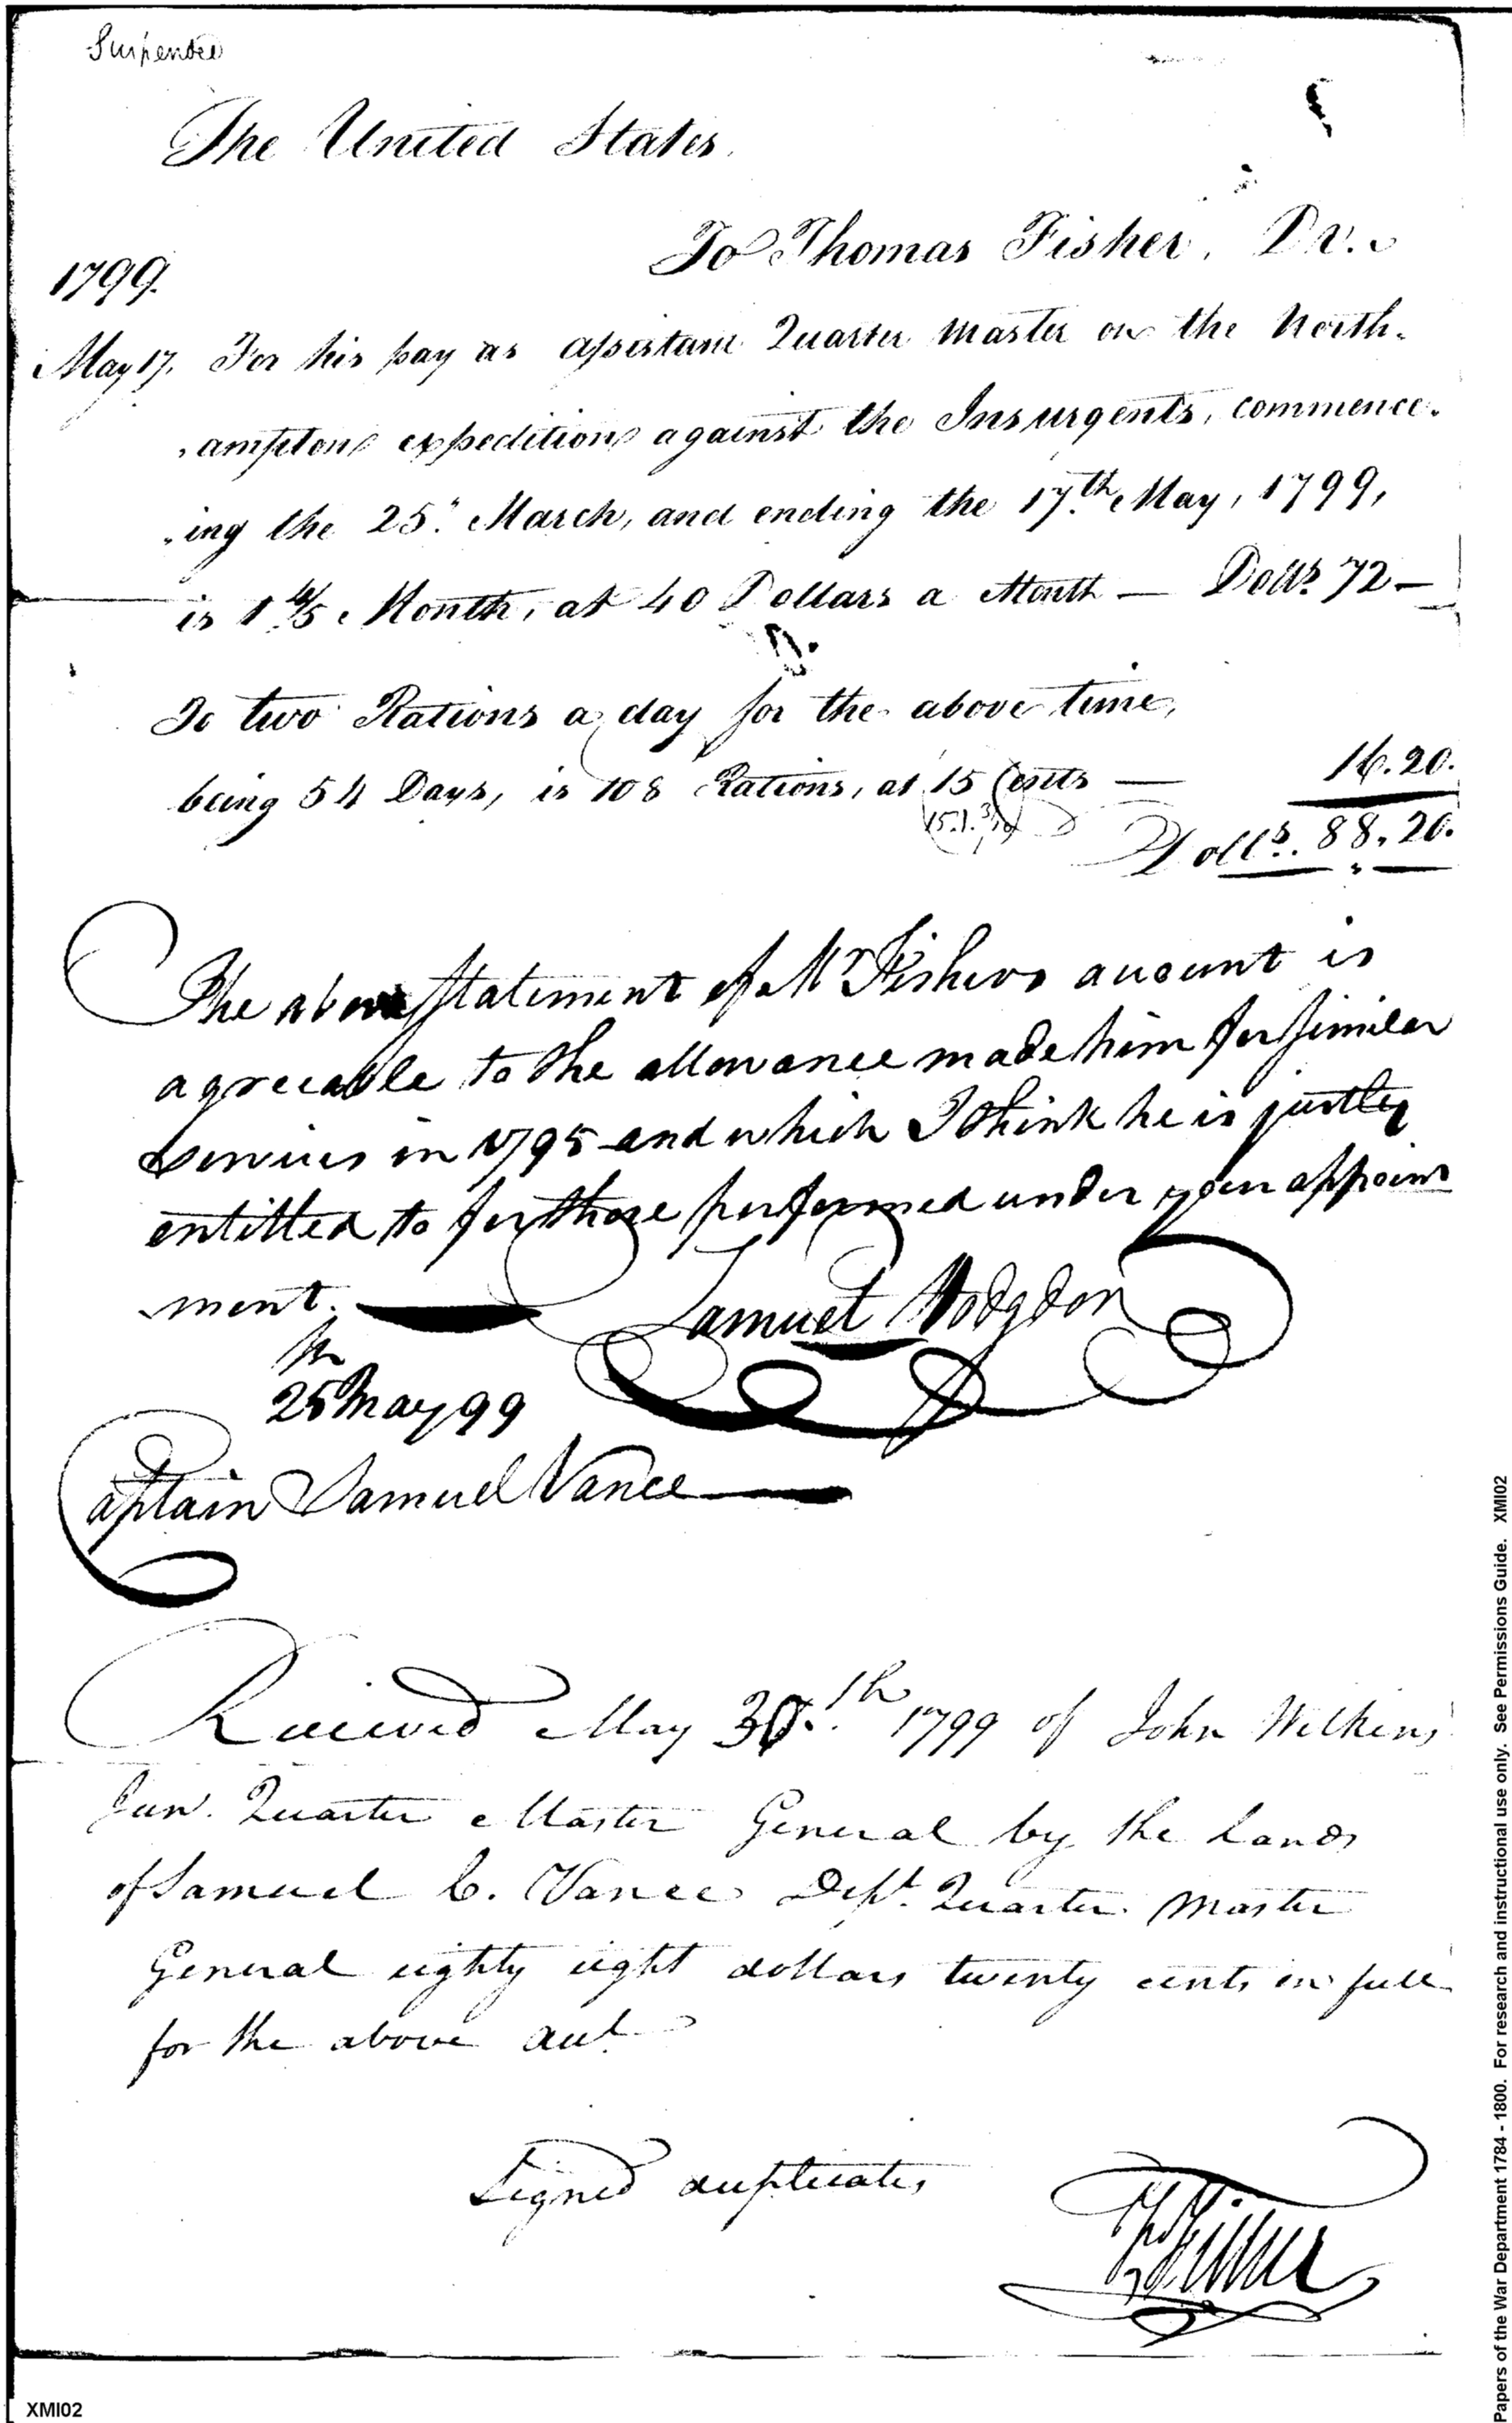 Suspended
The United States.
To Thomas Fisher, Dr.
1799.
May 17. For his pay as assistant Quarter Master on the North-
ampton expedition against the Insurgents, commence-
ing the 25th March, and ending the 17th May, 1799,
is 1 4/5 Month, at 40 Dollars a Month — Dolls. 72 —
To two Rations a day for the above time,
being 54 Days, is 108 Rations, at 15 Cents — 16.20.
Dolls. 88.20.
The above Statement of Mr Fishers account is
agreeable to the allowance made him for similar
services in 1795 and which I think he is justly
entitled to for those performed under your appoint
ment.
Samuel Hodgdon
25 May 99
Captain Samuel Vance
Received May 30th 1799 of John Wilkins
Junr. Quarter Master General by the hands
of Samuel C. Vance Dept. Quarter Master
General eighty eight dollars twenty cents in full
for the above act.
Signed duplicates
T Fisher
XMI02
Papers of the War Department 1784 - 1800. For research and instructional use only. See Permissions Guide. XMI02